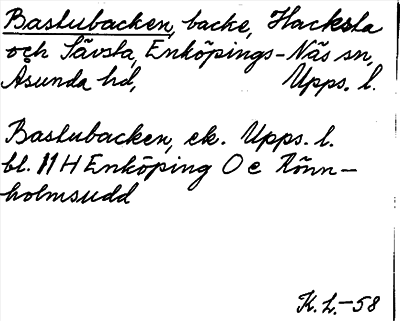 Bastubacken, backe, Hacksta
och Sävsta, Enköpings-Näs sn,
Åsunda hd, Upps. l.
Bastubacken, ek. Upps. l.
bl. 11 H Enköping O e Rönn-
holmsudd
K.L.-58